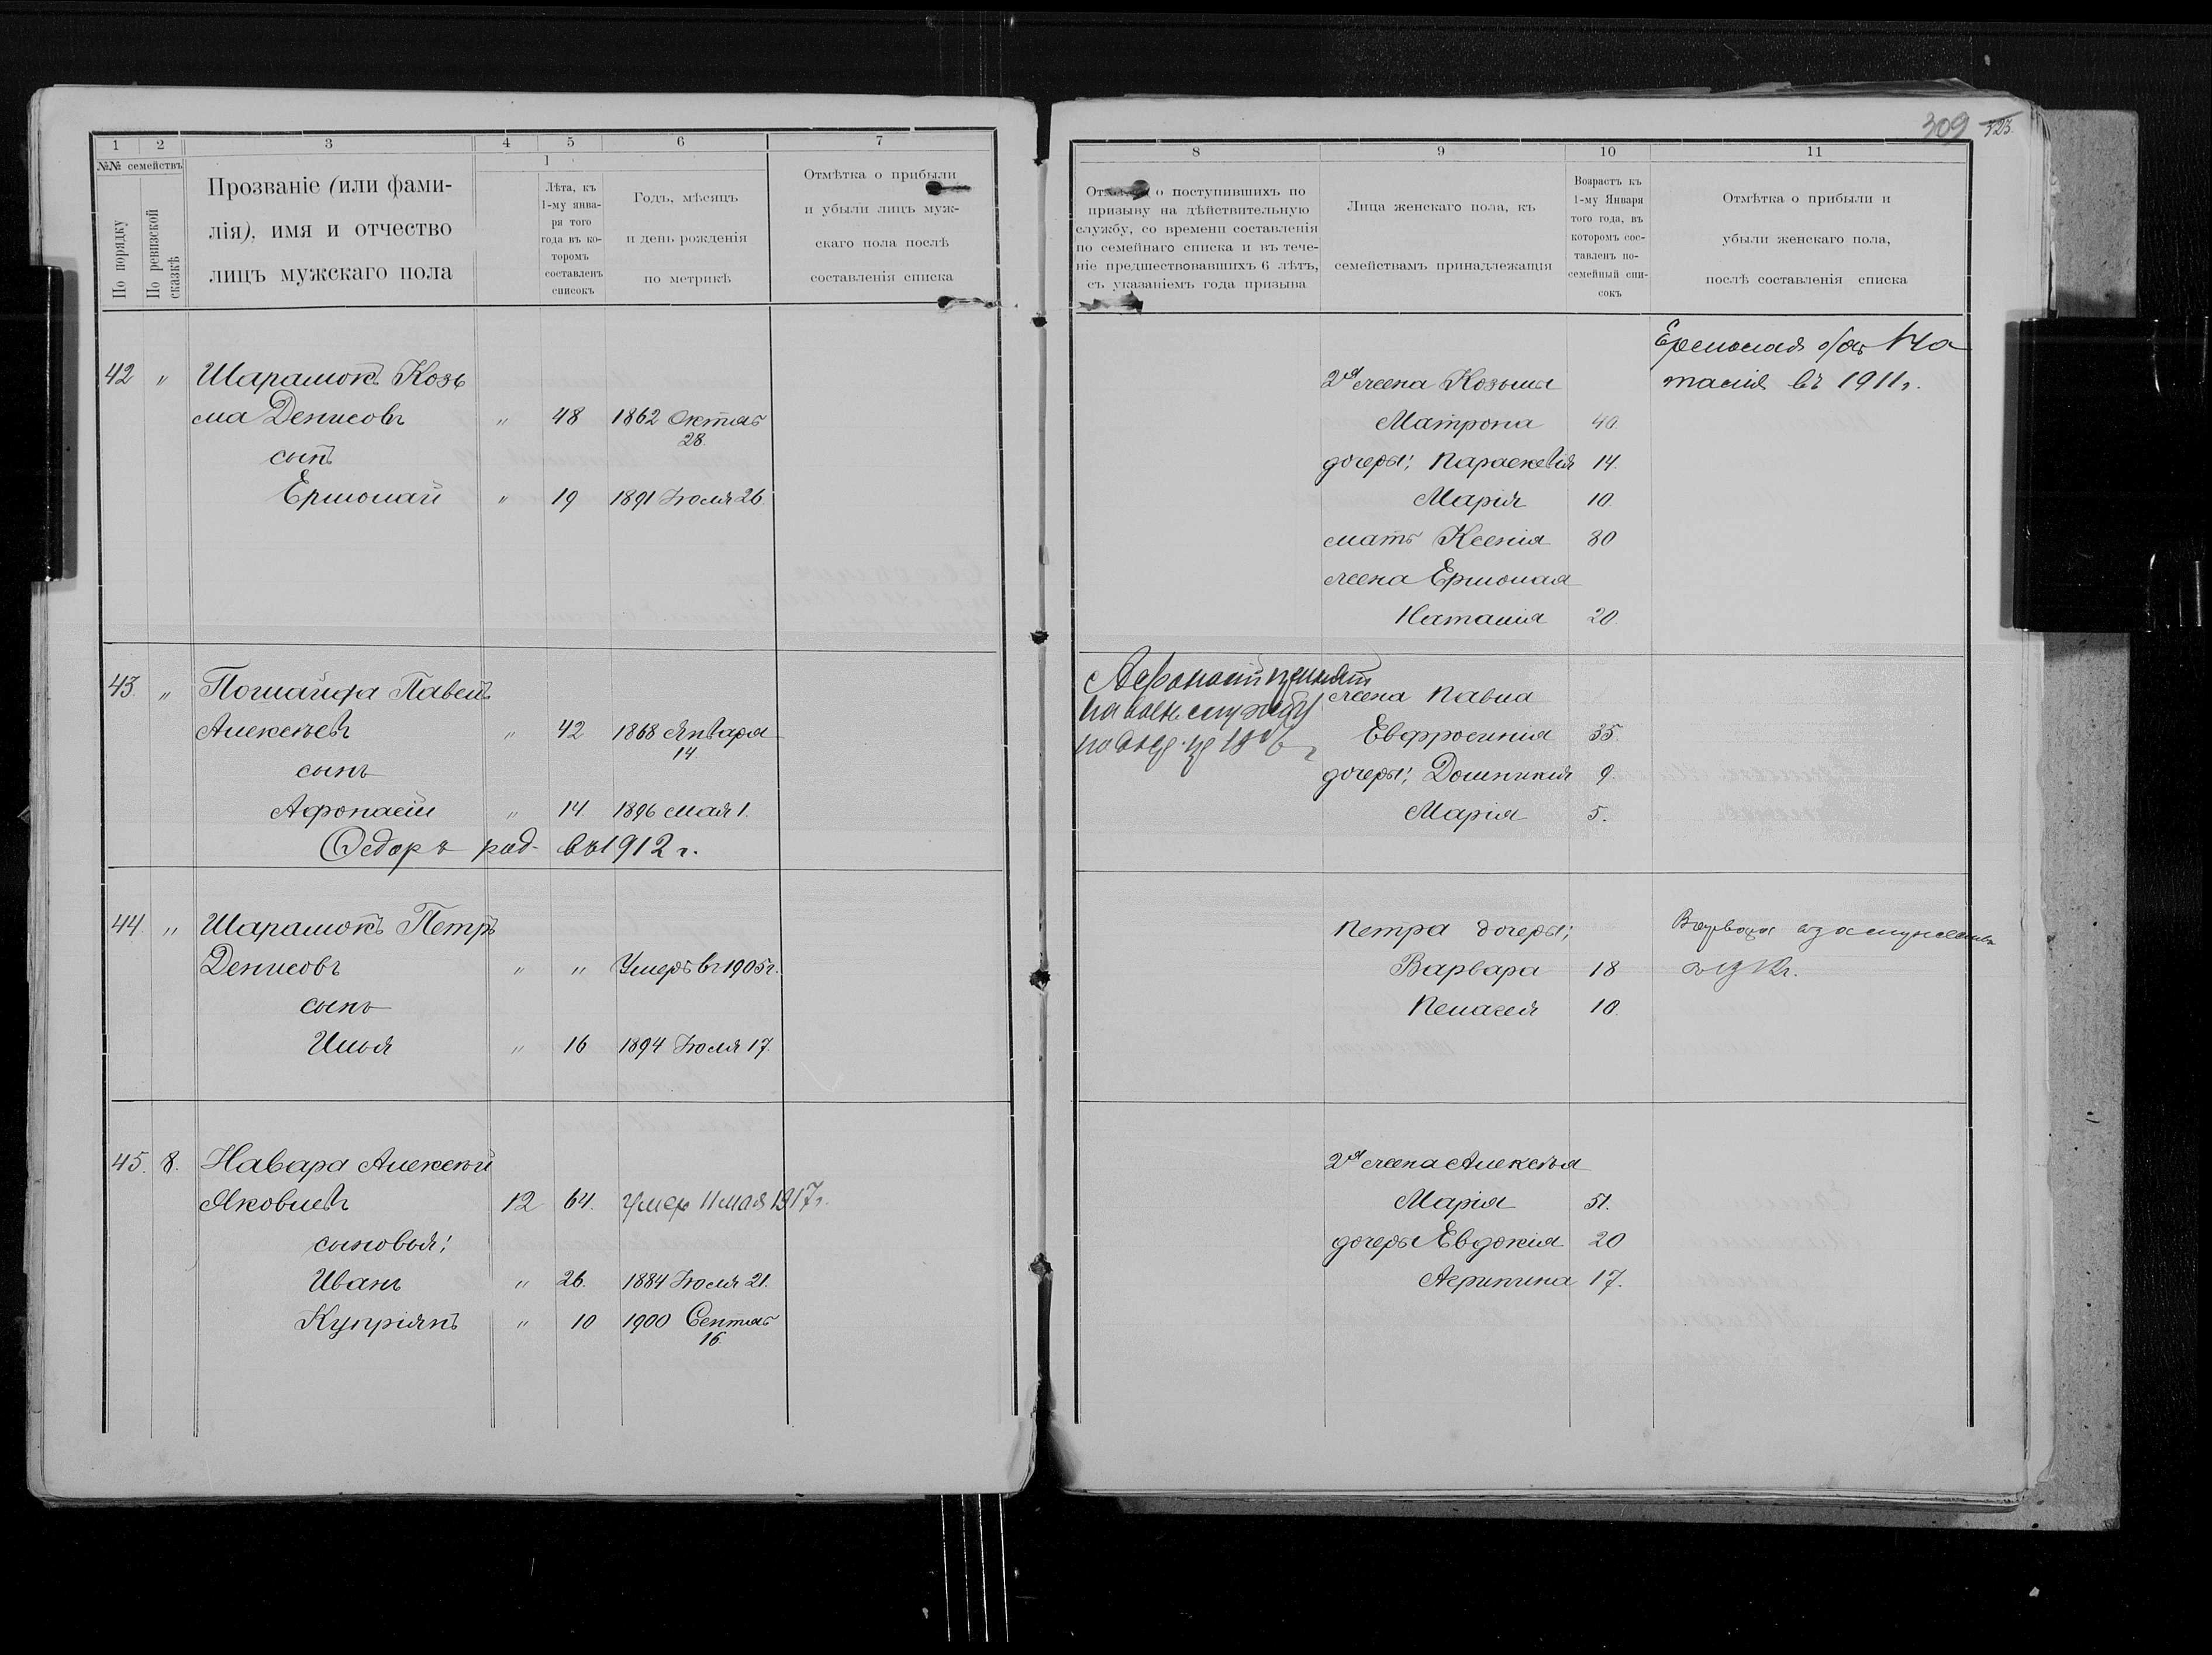 1 2 3 4 5 6 7
№№ семействъ
По порядку
По ревизской сказкѣ
Прозваніе (или фами-
лія), имя и отчество
лицъ мужскаго пола
1
Лѣта, къ
1-му янва-
ря того
года въ ко-
торомъ
составленъ
списокъ
Годъ, мѣсяцъ
и день рожденія
по метрикѣ
Отмѣтка о прибыли
и убыли лицъ муж-
скаго пола послѣ
составленія списка
42 " Шарамокъ Козь
ма Денисовъ " 48 1862 Октяб
28.
сынъ
Ермолай " 19 1891 Іюля 26.
43. " Павелъ
Алексѣевъ " 42 1868 Января
14
сынъ
Афонасій " 14. 1896 мая 1.
Федоръ род. въ 1912 г.
44. " Шарамокъ Петръ
Денисовъ " " Умеръ въ 1905 г.
сынъ
Илья " 16 1894 Іюля 17.
45. 8. Навара Алексѣй
Яковлевъ 12 64. умер 11 мая 1917 г.
сыновья:
Иванъ " 26. 1884 Іюля 21.
Купріянъ " 10 1900 Сентяб
16.
309 323.
8 9 10 11
о поступившихъ по
призыву на дѣйствительную
службу, со времени составленія
по семейнаго списка и въ тече-
ніе предшествовавшихъ 6 лѣтъ,
съ указаніемъ года призыва
Лица женскаго пола, къ
семействамъ принадлежащія
Возрастъ къ
1-му Января
того года, въ
которомъ сос-
тавленъ по-
семейный спи-
сокъ
Отмѣтка о прибыли и
убыли женскаго пола,
послѣ составленія списка
Ермолая На
2я жена Козьмы талія въ 1911 г.
Матрона 40.
дочеры: Параскевія 14.
Марія 10.
мать Ксенія 80
жена Ермолая
Наталія 20.
Афонасій принят
на воен службу
жена Павла
Евфросинія 35.
дочеры: Домникія 9.
Марія 5.
Петра дочеры; Варвара
Варвара 18
Пелагея 10.
2я жена Алексѣя
Марія 51.
дочеры Евдокія 20
Агрипина 17.